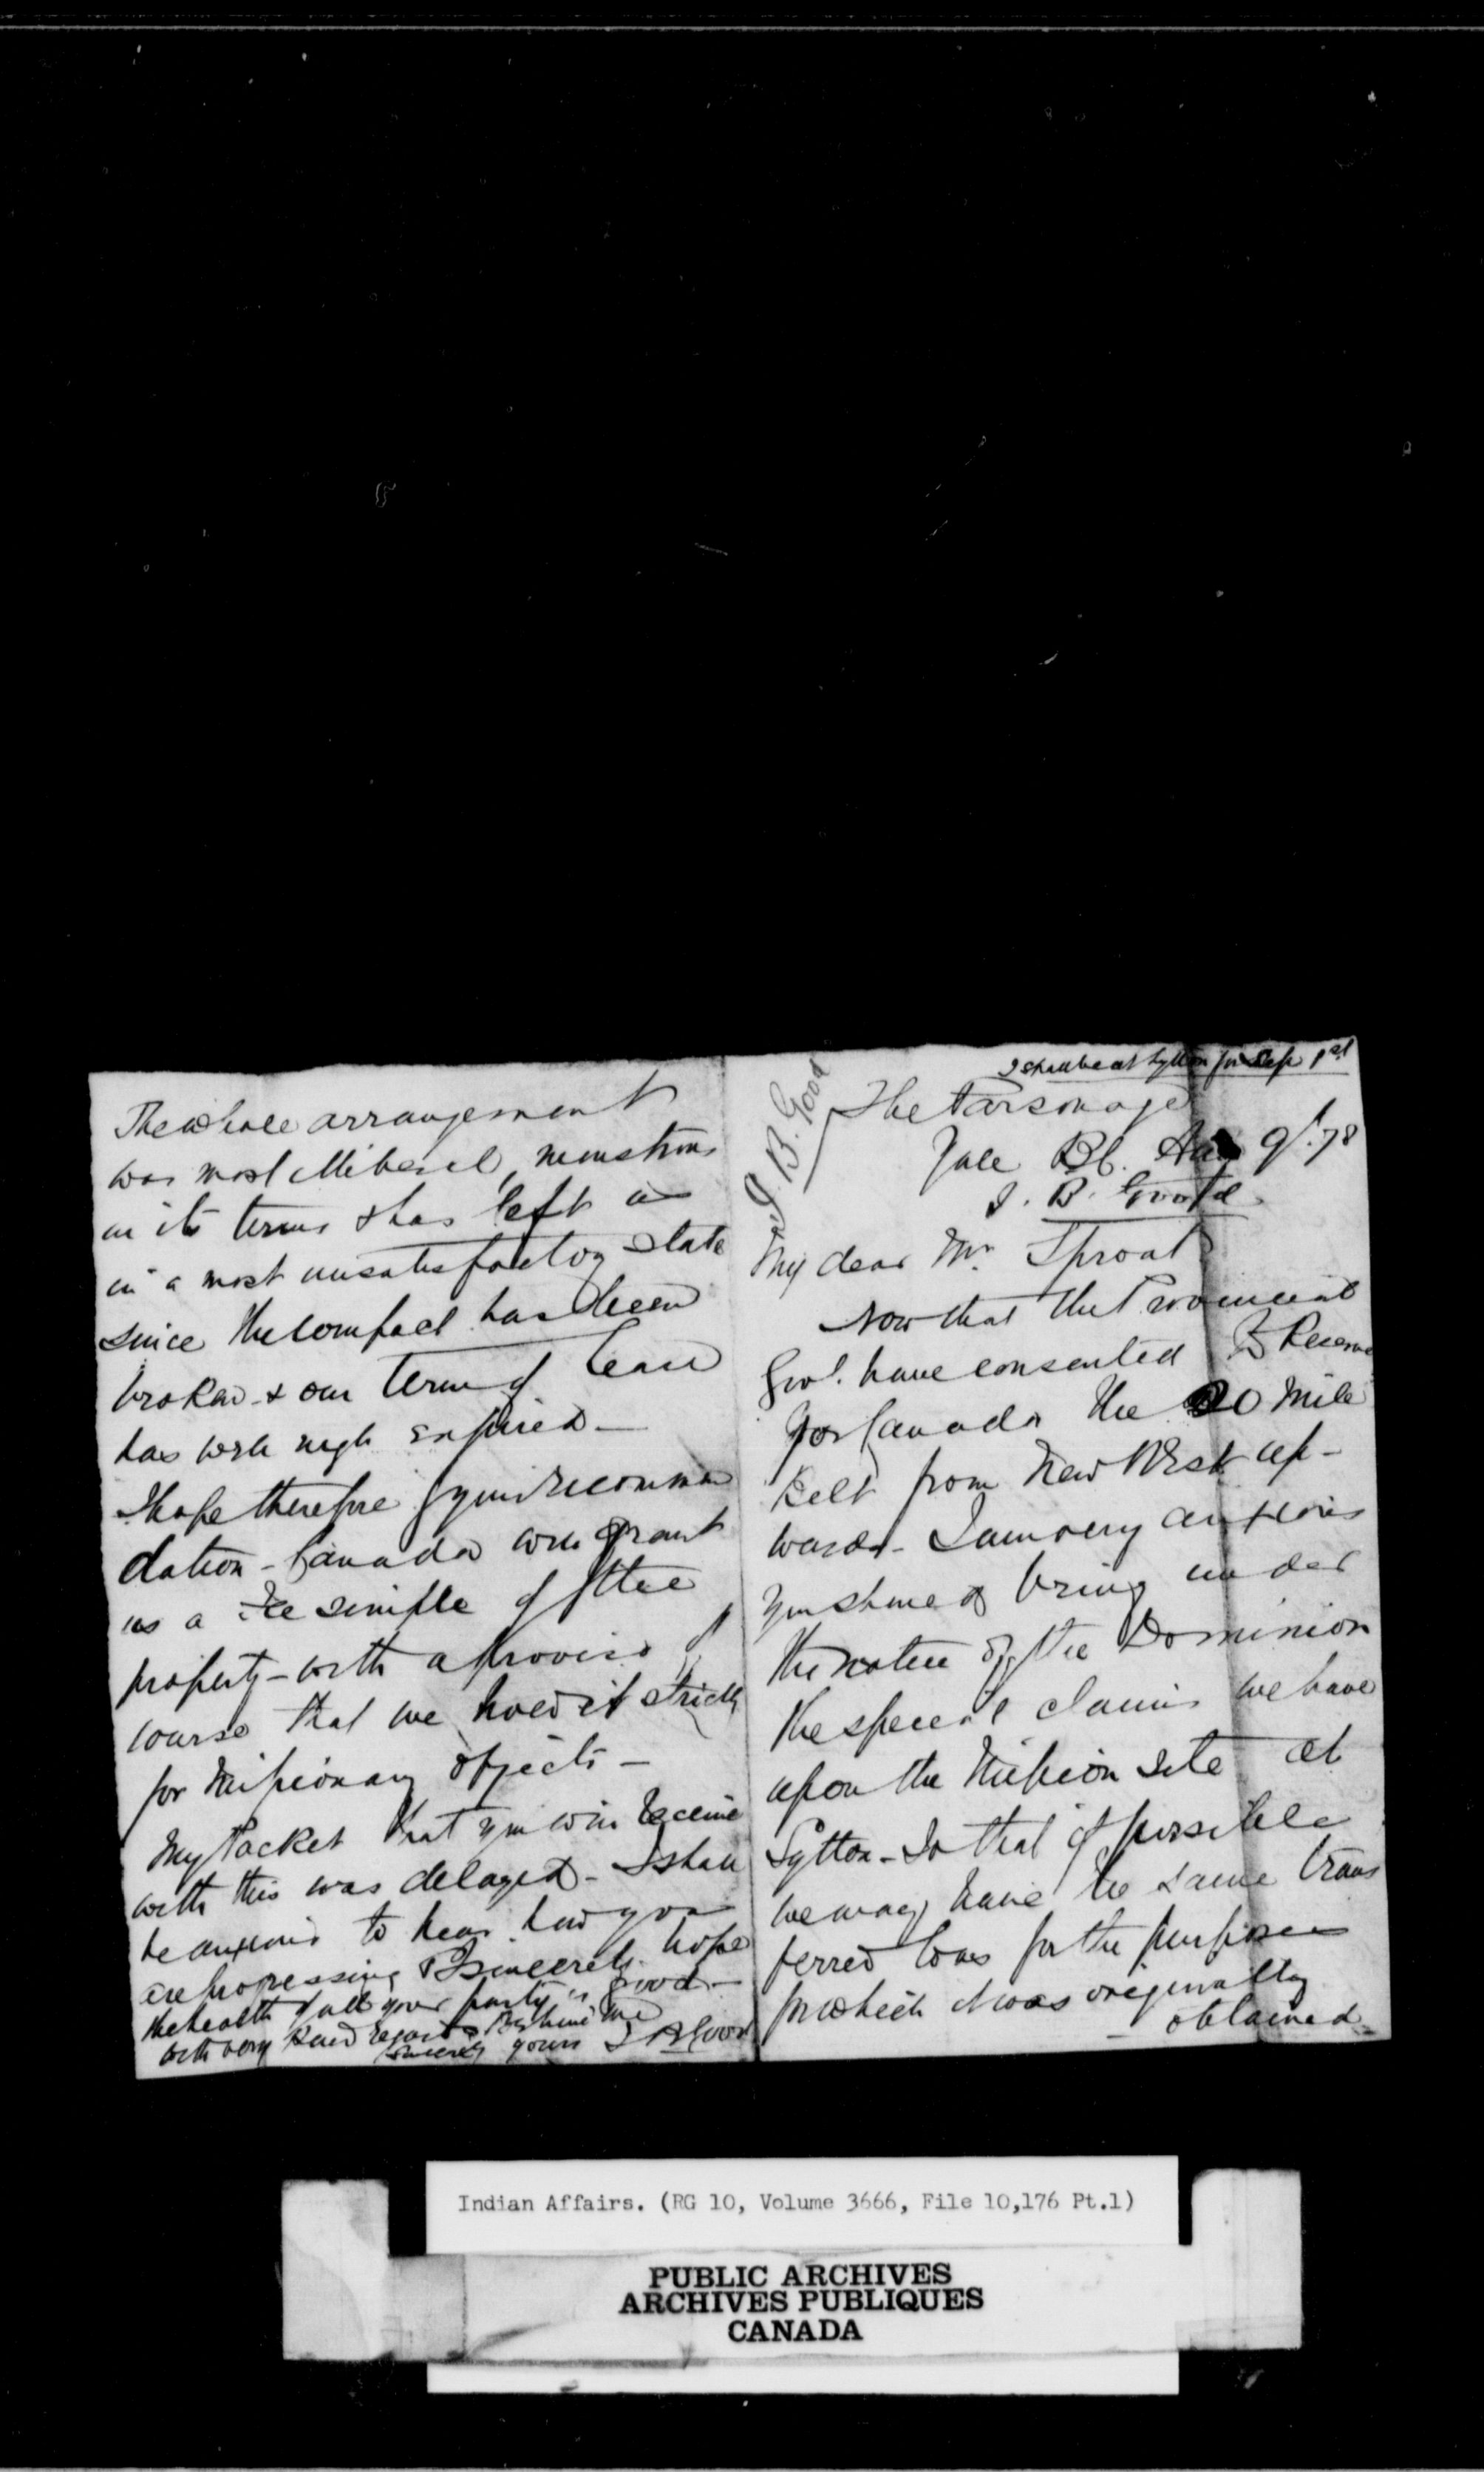 I shall be at Lytton for Sep 1st
J. B. Good
The Parsonage
Yale BC. Aug 9/.78
J. B. Good
My dear Mr. Sproat
Now that the Provincial
Govt. have consented to Reserve
for Canada the 20 mile
Belt from New West up-
wards - I am very anxious
you should bring under
the notice of the Dominion
the special claims we have
upon the Mission Site at
Lytton - So that if possible
we may have the same trans
ferred to us for the purposes
for which it was originally
obtained
The whole arrangement
was most illiberal, monstrous
in its terms & has left us
in a most unsatisfactory state
since the compact has been
broken & our term of lease
has well nigh expired -
I hope therefore if you recommen
dation - Canada will grant
us a Fee simple of the
property - with a proviso of
course that we hold it strictly
for Missionary objects -
My Packet that you will receive
with this was delayed - I shall
be anxious to hear how you
are progressing & sincerely hope
the health of all your party is good -
with very kind regards Believe me
Sincerely yours J B Good
Indian Affairs. (RG 10, Volume 3666, File 10,176 Pt.1)
PUBLIC ARCHIVES
ARCHIVES PUBLIQUES
CANADA